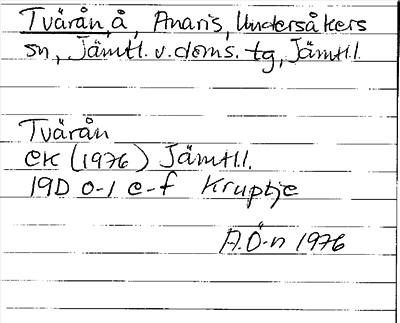 Tvärån, å, Anaris, Undersåkers
sn, Jämtl. v. doms. tg, Jämtl.l.
Tvärån
ek (1976) Jämtl.l.
19D 0-1 e-f Kruptje
A.Ö-n 1976